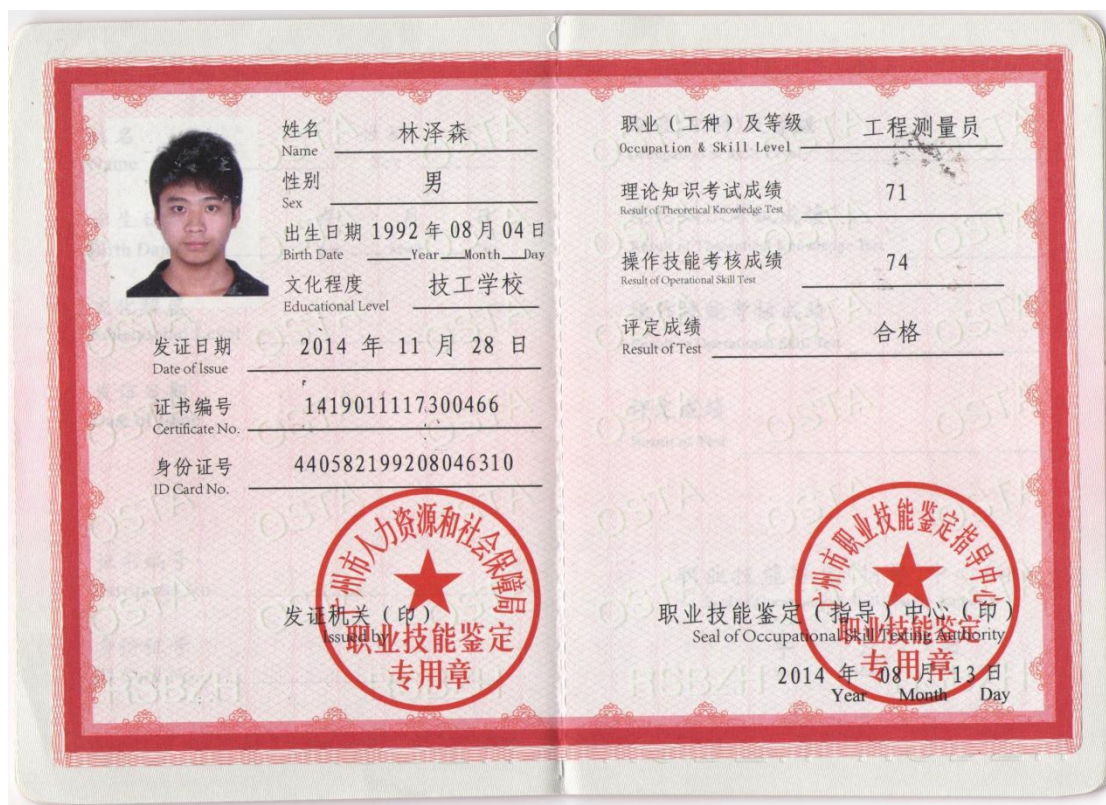 姓名 林泽森
Name
性别 男
Sex
出生日期 1992 年 08 月 04 日
Birth Date Year Month Day
文化程度 技工学校
Educational Level
发证日期 2014 年 11 月 28 日
Date of Issue
证书编号 1419011117300466
Certificate No.
身份证号 440582199208046310
ID Card No.
广州市人力资源和社会保障局
发证机关(印)
Issued by
职业技能鉴定
专用章
职业(工种)及等级 工程测量员
Occupation & Skill Level
理论知识考试成绩 71
Result of Theoretical Knowledge Test
操作技能考核成绩 74
Result of Operational Skill Test
评定成绩 合格
Result of Test
广州市职业技能鉴定指导中心
职业技能鉴定(指导)中心(印)
Seal of Occupational Skill Testing Authority
职业技能鉴定
专用章
2014 年 08 月 13 日
Year Month Day